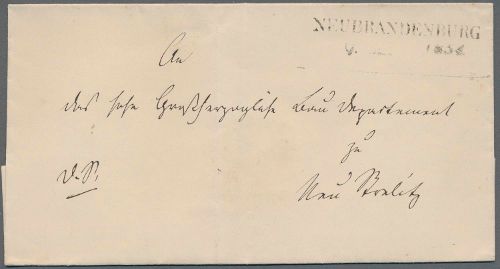 NEUBRANDENBURG
1838
An
das hohe Großherzogliche Bau Departement
zu
d. S.
Neu Strelitz